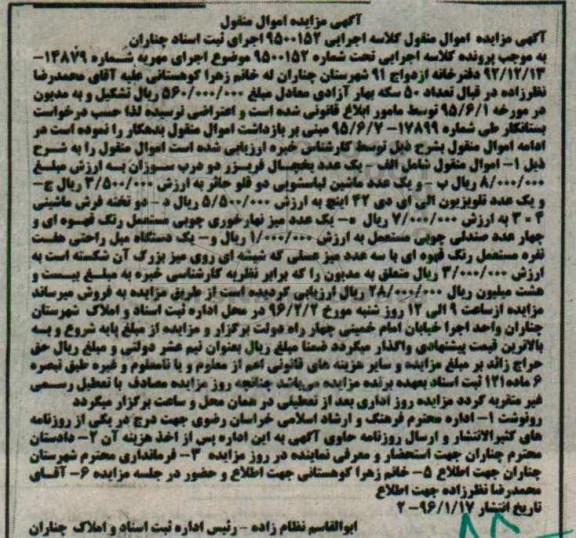 آگهی مزایده اموال منقول
آگهی مزایده اموال منقول کلاسه اجرایی ۹۵۰۰۱۵۲ اجرای ثبت اسناد چناران
به موجب پرونده کلاسه اجرایی تحت شماره ۹۵۰۰۱۵۲ موضوع اجرای مهریه شماره ۱۳۸۷۹-
۹۲/۱۲/۱۳ دفترخانه ازدواج ۹۱ شهرستان چناران له خانم زهرا کوهستانی علیه آقای محمدرضا
نظرزاده در قبال تعداد ۵۰ سکه بهار آزادی معادل مبلغ ۵۶۰/۰۰۰/۰۰۰ ریال تشکیل و به مدیون
در مورخه ۹۵/۶/۱ توسط مامور ابلاغ قانونی شده است و اعتراضی نرسیده لذا حسب درخواست
بستانکار طی شماره ۱۷۸۹۹-۹۵/۶/۷ مبنی بر بازداشت اموال منقول بدهکار را نموده است در
ادامه اموال منقول بشرح ذیل توسط کارشناس خبره ارزیابی شده است اموال منقول را به شرح
ذیل ۱- اموال منقول شامل الف - یک عدد یخچال فریزر دو درب سوزان به ارزش مبلغ
۸/۰۰۰/۰۰۰ ریال ب - و یک عدد ماشین لباسشویی دو قلو حائر به ارزش ۳/۵۰۰/۰۰۰ ریال ج-
و یک عدد تلویزیون ال ای دی ۴۲ اینچ به ارزش ۵/۵۰۰/۰۰۰ ریال د - دو تخته فرش ماشینی
۴ * ۳ به ارزش ۷/۰۰۰/۰۰۰ ریال ه- یک عدد میز نهارخوری چوبی مستعمل رنگ قهوه ای و
چهار عدد صندلی چوبی مستعمل به ارزش ۱/۰۰۰/۰۰۰ ریال و- یک دستگاه مبل راحتی هفت
نفره مستعمل رنگ قهوه ای با سه عدد میز عسلی که شیشه ای روی میز بزرگ آن شکسته است به
ارزش ۳/۰۰۰/۰۰۰ ریال متعلق به مدیون را که برابر نظریه کارشناسی خبره به مبلغ بیست و
هشت میلیون ریال ۲۸/۰۰۰/۰۰۰ ریال ارزیابی گردیده است از طریق مزایده به فروش میرساند
مزایده ازساعت ۹ الی ۱۲ روز شنبه مورخ ۹۶/۲/۲ در محل اداره ثبت اسناد و املاک شهرستان
چناران واحد اجرا خیابان امام خمینی چهار راه دولت برگزار و مزایده از مبلغ پایه شروع و به
بالاترین قیمت پیشنهادی واگذار میگردد ضمنا مبلغ ریال بعنوان نیم عشر دولتی و مبلغ ریال حق
حراج زائد بر مبلغ مزایده و سایر هزینه های قانونی اعم از معلوم و یا نامعلوم و غیره طبق تبصره
۶ ماده۱۲۱ ثبت اسناد بعهده برنده مزایده میباشد چنانچه روز مزایده مصادف با تعطیل رسمی
غیر متقربه گردد مزایده روز اداری بعد از تعطیلی در همان محل و ساعت برگزار میگردد
رونوشت ۱- اداره محترم فرهنگ و ارشاد اسلامی خراسان رضوی جهت درج در یکی از روزنامه
های کثیرالانتشار و ارسال روزنامه حاوی آگهی به این اداره پس از اخذ هزینه آن ۲- دادستان
محترم چناران جهت استحضار و معرفی نماینده در روز مزایده ۳- فرمانداری محترم شهرستان
چناران جهت اطلاع ۵- خانم زهرا کوهستانی جهت اطلاع و حضور در جلسه مزایده ۶- آقای
محمدرضا نظرزاده جهت اطلاع
تاریخ انتشار ۹۶/۱/۱۷- ۲
ابوالقاسم نظام زاده - رئیس اداره ثبت اسناد و املاک چناران